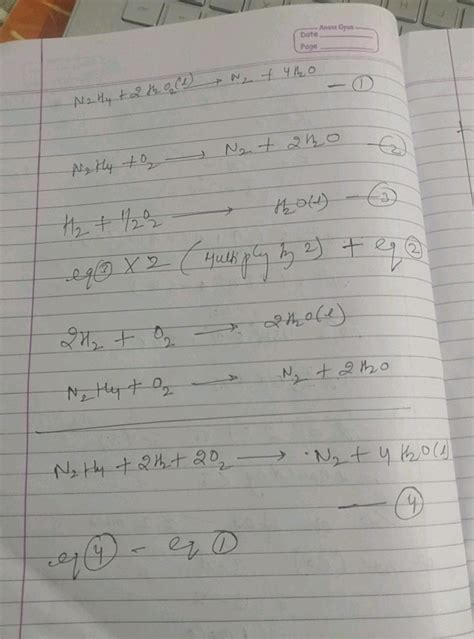 Anant Opus
Date
Page
N2H4 + 2H2O2(l) ⟶ N2 + 4H2O — ①
N2H4 + O2 ⟶ N2 + 2H2O — ②
H2 + 1/2O2 ⟶ H2O(l) — ③
eq③ X 2 (Multiply by 2) + eq②
2H2 + O2 ⟶ 2H2O(l)
N2H4 + O2 ⟶ N2 + 2H2O
N2H4 + 2H2 + 2O2 ⟶ N2 + 4H2O(l)
— ④
eq④ - eq①